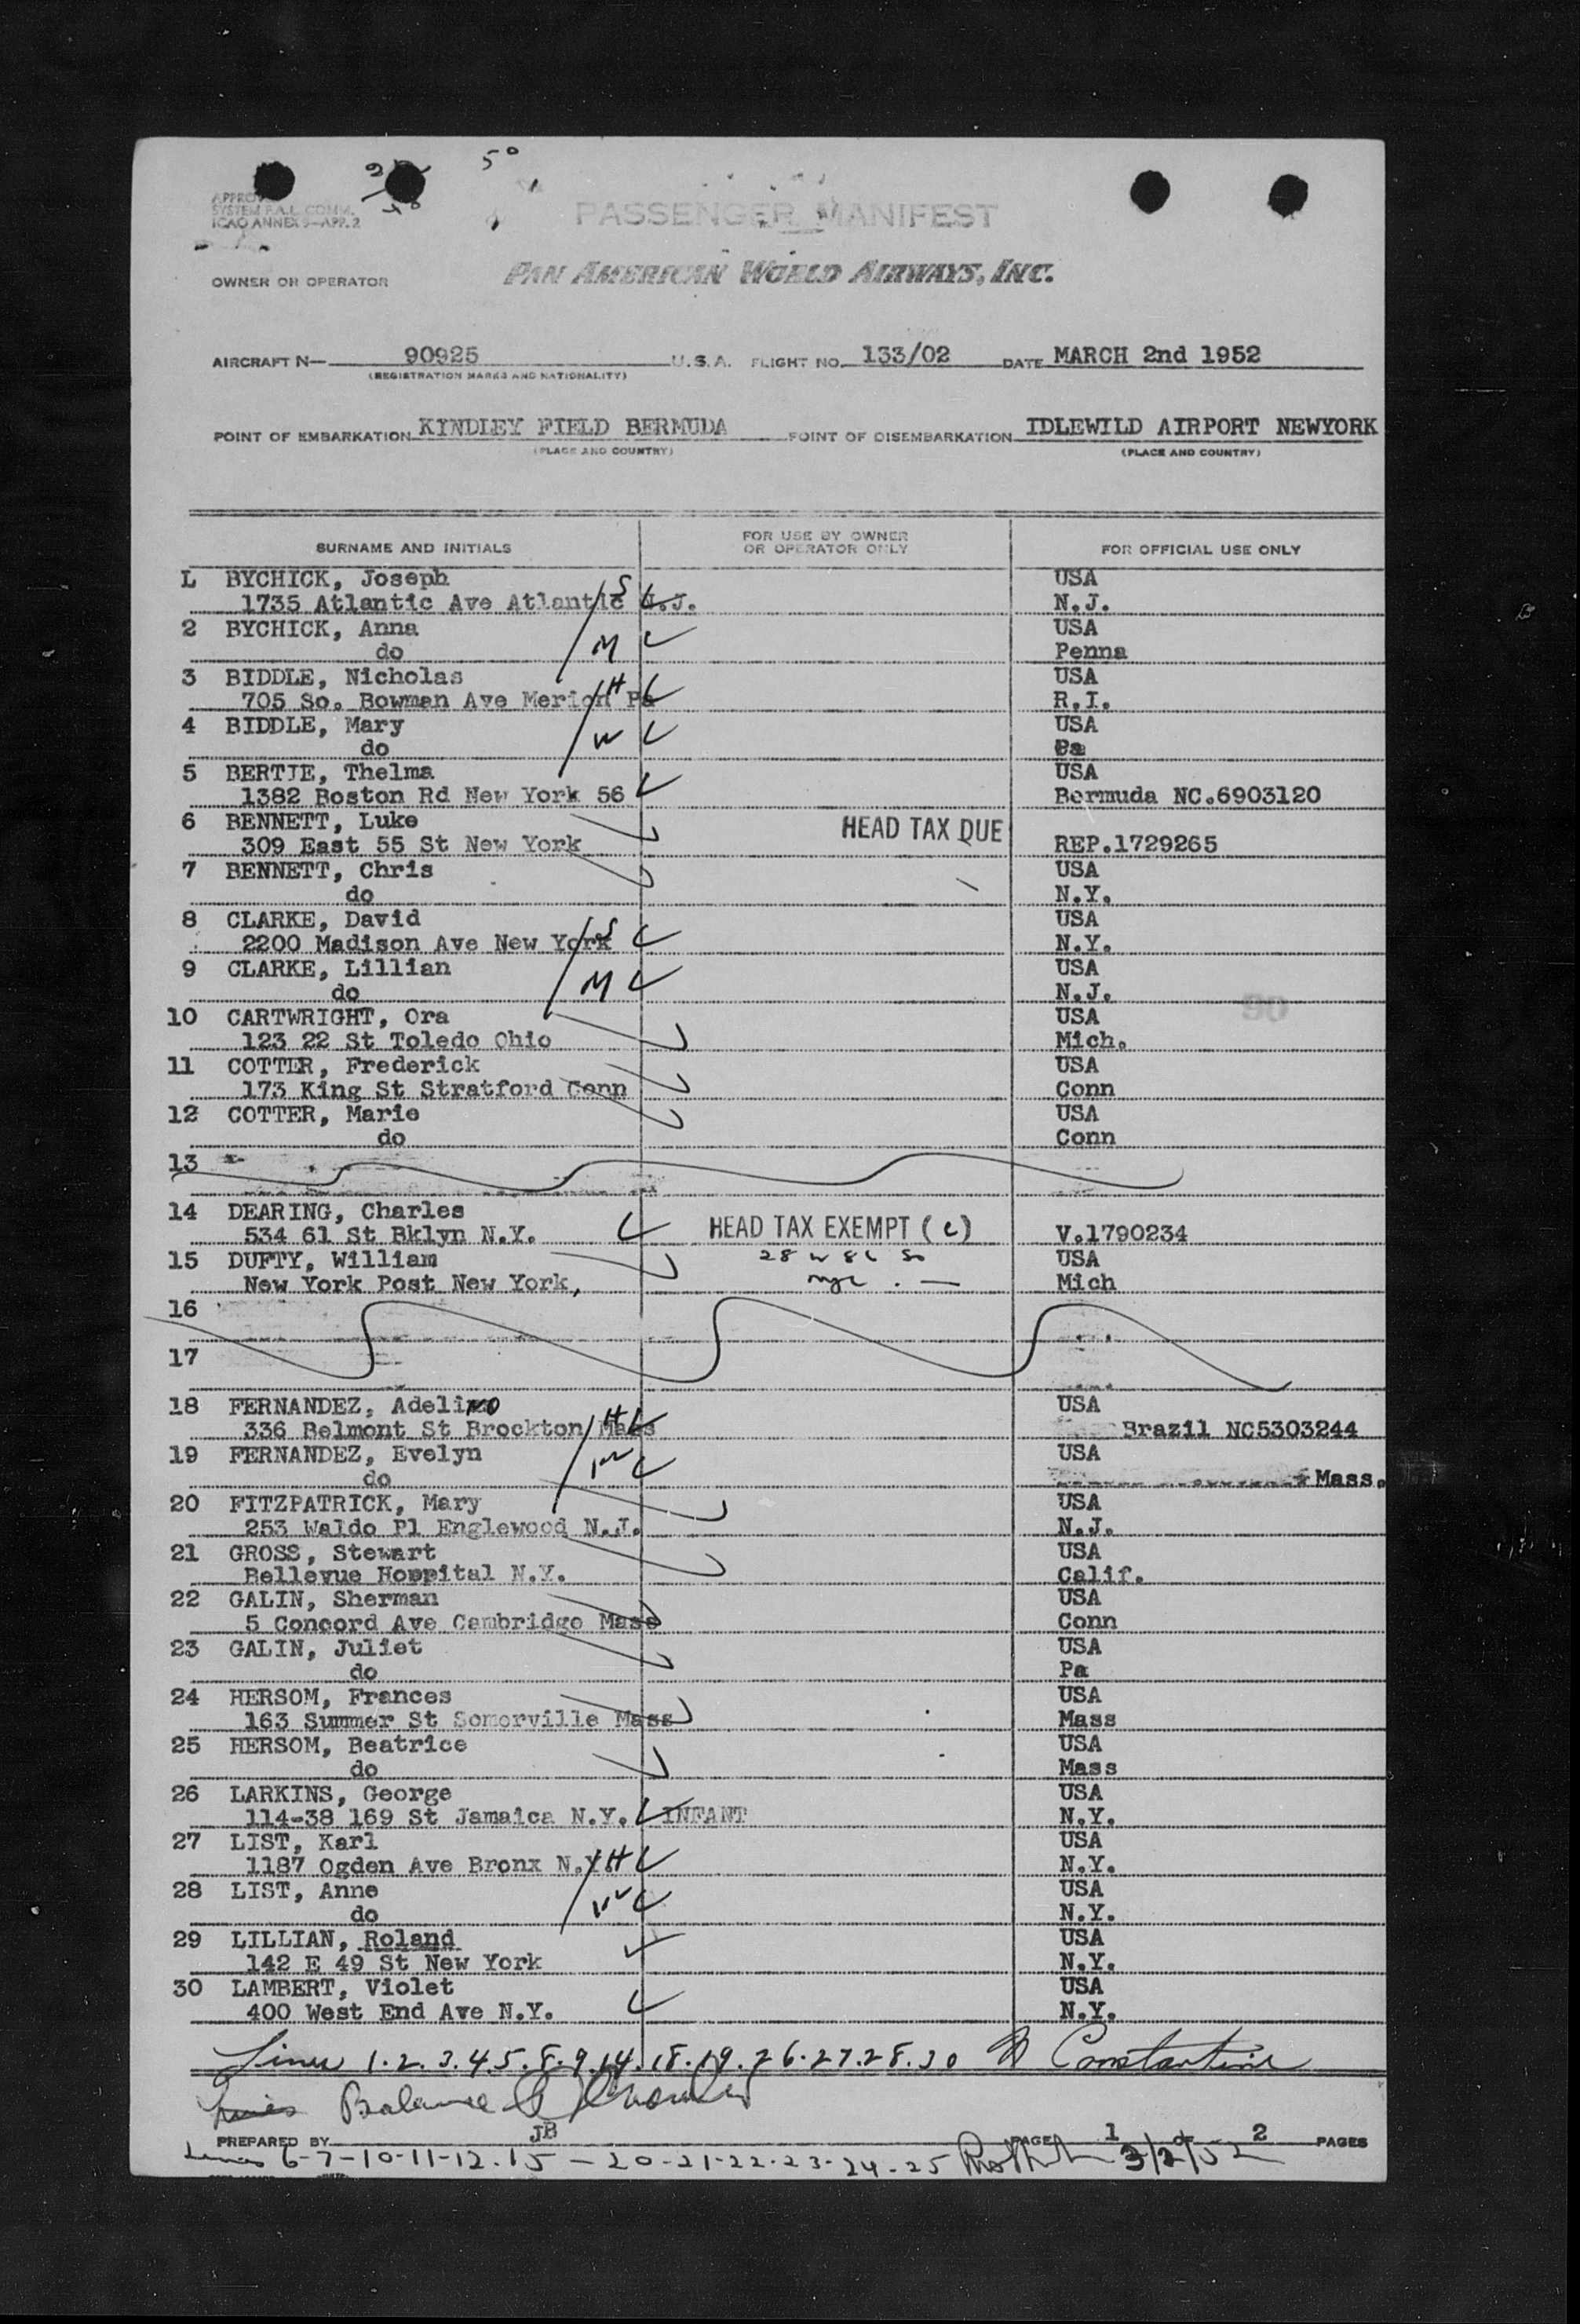 5°
APPRO
SYSTEM F.A.L. COMM.
ICAO ANNEX 9—APP. 2
PASSENGER MANIFEST
OWNER OR OPERATOR PAN AMERICAN WORLD AIRWAYS, INC.
AIRCRAFT N— 90925 U.S.A. FLIGHT NO. 133/02 DATE MARCH 2nd 1952
(REGISTRATION MARKS AND NATIONALITY)
POINT OF EMBARKATION KINDLEY FIELD BERMUDA POINT OF DISEMBARKATION IDLEWILD AIRPORT NEWYORK
(PLACE AND COUNTRY) (PLACE AND COUNTRY)
SURNAME AND INITIALS FOR USE BY OWNER OR OPERATOR ONLY FOR OFFICIAL USE ONLY
L BYCHICK, Joseph USA
1735 Atlantic Ave Atlantic S N.J. N.J.
2 BYCHICK, Anna USA
do M Penna
3 BIDDLE, Nicholas USA
705 So. Bowman Ave Merion H Pa R.I.
4 BIDDLE, Mary USA
do W Pa
5 BERTIE, Thelma USA
1382 Boston Rd New York 56 Bermuda NC.6903120
6 BENNETT, Luke HEAD TAX DUE
309 East 55 St New York REP.1729265
7 BENNETT, Chris USA
do N.Y.
8 CLARKE, David USA
2200 Madison Ave New York S N.Y.
9 CLARKE, Lillian USA
do M N.J.
10 CARTWRIGHT, Ora USA
123 22 St Toledo Ohio Mich.
11 COTTER, Frederick USA
173 King St Stratford Conn Conn
12 COTTER, Marie USA
do Conn
13
14 DEARING, Charles HEAD TAX EXEMPT (c)
534 61 St Bklyn N.Y. V.1790234
15 DUFTY, William 28 W 86 St USA
New York Post New York, nyc Mich
16
17
18 FERNANDEZ, Adelino USA
336 Belmont St Brockton H Mass Brazil NC5303244
19 FERNANDEZ, Evelyn USA
do W Mass.
20 FITZPATRICK, Mary USA
253 Waldo Pl Englewood N.J. N.J.
21 GROSS, Stewart USA
Bellevue Hoppital N.Y. Calif.
22 GALIN, Sherman USA
5 Concord Ave Cambridge Mass Conn
23 GALIN, Juliet USA
do Pa
24 HERSOM, Frances USA
163 Summer St Somerville Mass Mass
25 HERSOM, Beatrice USA
do Mass
26 LARKINS, George USA
114-38 169 St Jamaica N.Y. INFANT N.Y.
27 LIST, Karl USA
1187 Ogden Ave Bronx N.Y H N.Y.
28 LIST, Anne USA
do W N.Y.
29 LILLIAN, Roland USA
142 E 49 St New York N.Y.
30 LAMBERT, Violet USA
400 West End Ave N.Y. N.Y.
Lines 1.2.3.4.5.8.9.14.18.19.26.27.28.30 Constantine
Lines Balance
PREPARED BY JB PAGE 1 OF 2 PAGES
Lines 6-7-10-11-12.15-20-21-22-23-24-25 3/2/52